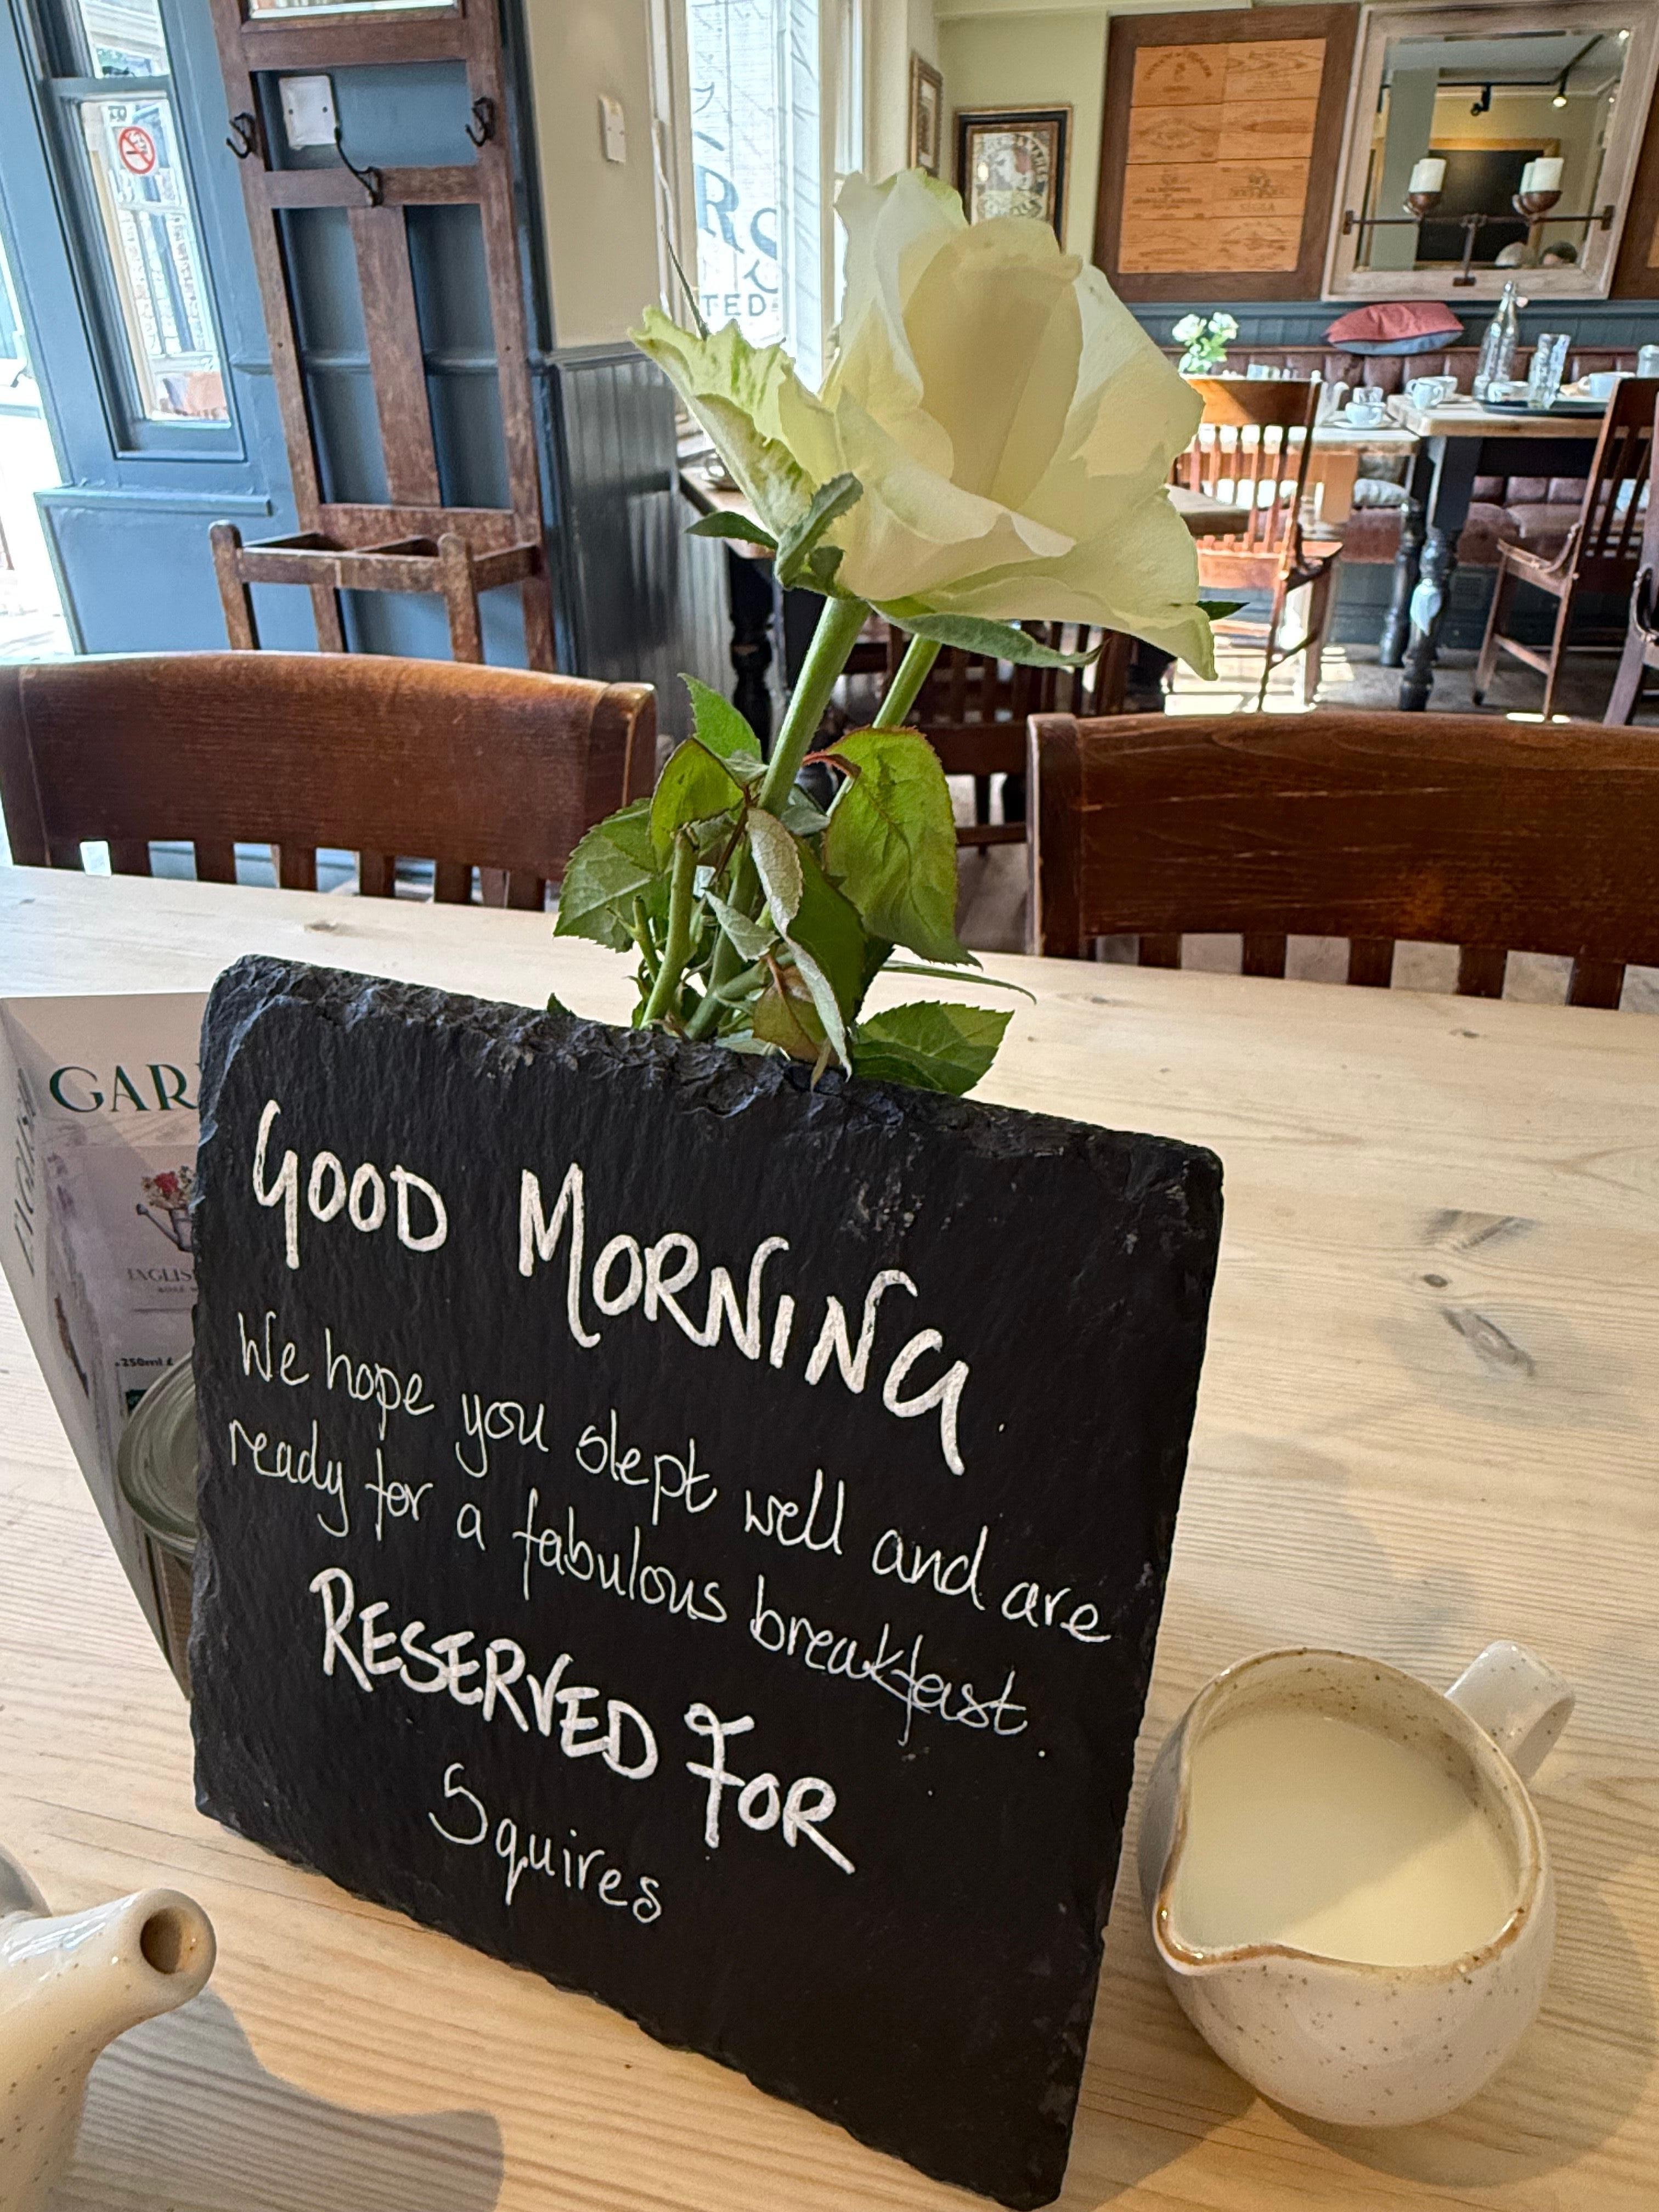 RS
TED
GAR
ENGLIS
250ml £
GOOD MORNING.
We hope you slept well and are
ready for a fabulous breakfast.
RESERVED FOR
Squires